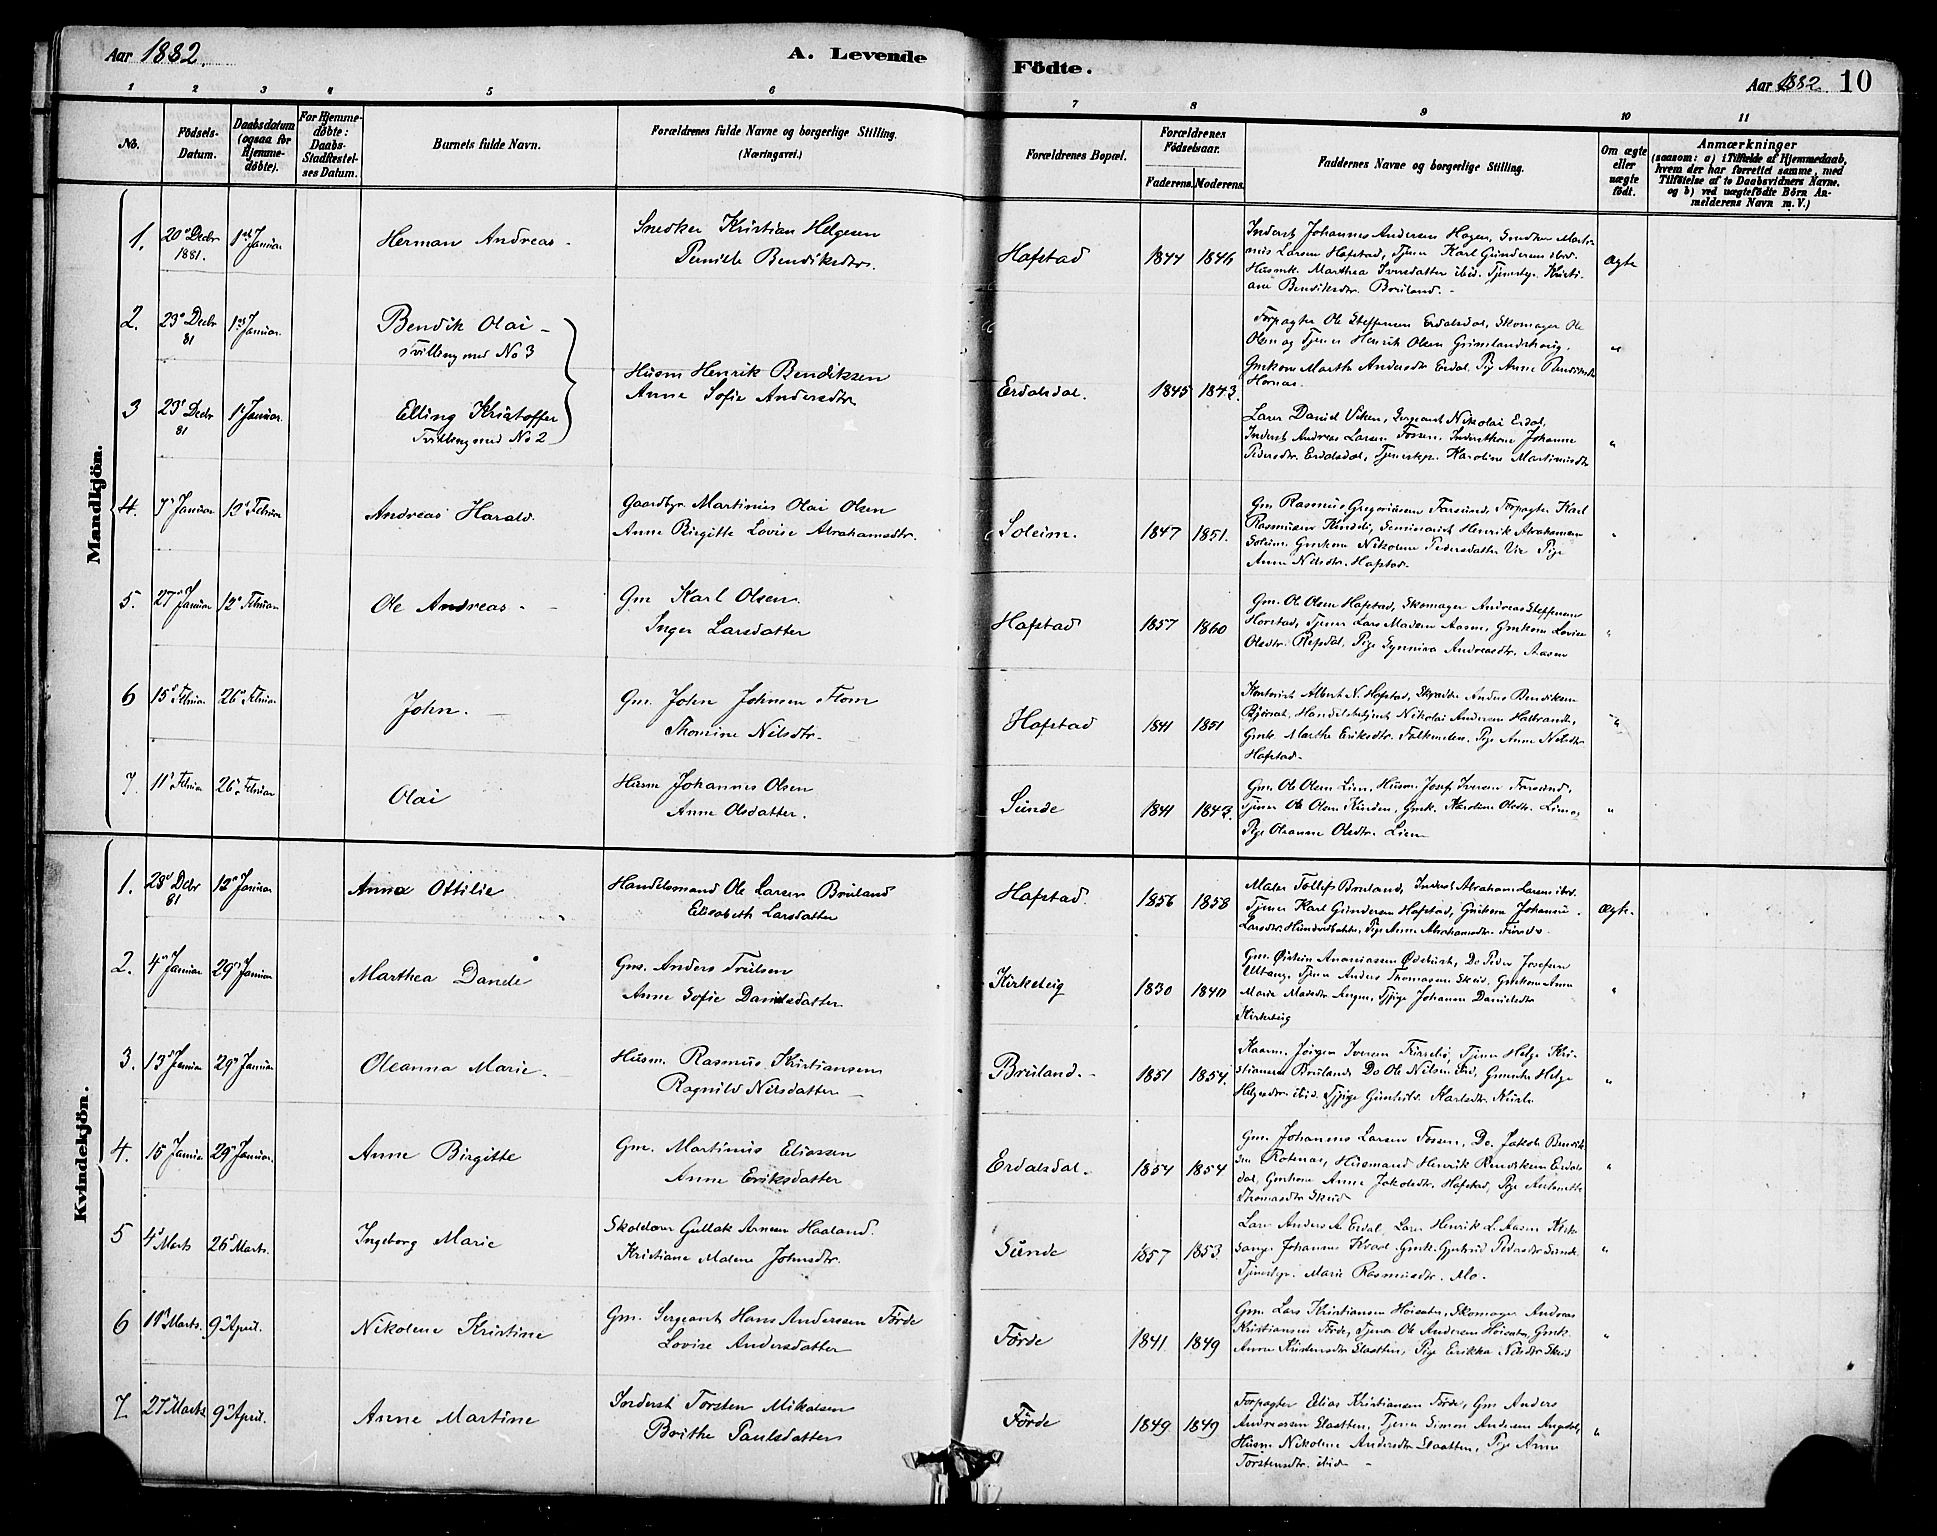 Aar 1882.
A. Levende Födte.
Aar 1882. 10
1 2 3 4 5 6 7 8 9 10 11
No.
Födsels-
Datum.
Daabsdatum
(ogsaa for
Hjemme-
døbte).
For Hjemme-
døbte:
Daabs-
Stadfæstel-
ses Datum.
Barnets fulde Navn.
Forældrenes fulde Navne og borgerlige Stilling.
(Næringsvei.)
Forældrenes Bopæl.
Forældrenes
Födselsaar.
Faderens. Moderens.
Faddernes Navne og borgerlige Stilling.
Om ægte
eller
uægte
födt.
Anmærkninger
(saasom: a) i Tilfælde af Hjemmedaab,
hvem der har forrettet samme, med
Tilföielse af to Daabsvidners Navne,
og b) ved uægtefödte Börn An-
melderens Navn m. V.)
Mandkjön.
1. 20 Decbr 1881. 1 Januar Herman Andreas
Snedker Kristian Helgesen
Bendiksdtr.
Hafstad 1844 1846
Inderst Johannes Andersen Hagen, Snedker Marti-
nus Larsen Hafstad, Tjener Karl Gundersen ibid.
Husmk. Marthea Iversdatter ibid. Kristi-
ane Bendiksdtr. Bruland.
Ægte
2. 23 Decbr 81 1 Januar Bendik Olai
Tvilling med No 3
Husm Henrik Bendiksen
Anne Sofie Andersdtr
Erdalsdal. 1845 1843.
Forpagter Ole Steffensen Erdalsdal, Skomager Ole
Olsen og Tjener Henrik Olsen
Gmkone Marthe Andersdtr Erdal, Pige Anne Bendiksdtr
Hornæs.
"
3 23 Decbr 81 1 Januar Elling Kristoffer
Tvilling med No 2
Lærer Daniel Viken, Sergeant Nikolai Erdal,
Inderst Andreas Larsen Fossen, Inderstkone Johanne
Pedersdtr. Erdalsdal, Karoline Martinusdtr
"
4. 7 Januar 12 Februar Andreas Harald.
Gaardbr. Martinus Olai Olsen
Anne Birgitte Lovise Abrahamsdtr.
Soleim. 1847 1851.
Gm Rasmus Gregoriussen Farsund, Forpagter Karl
Rasmussen Seminarist Henrik Abrahamsen
Soleim. Gmkone Nikolene Pedersdatter Vie Pige
Anne Nilsdtr. Hafstad.
"
5. 27 Januar 12 Februar Ole Andreas
Gm Karl Olsen.
Inger Larsdatter
Hafstad 1857 1860
Gm. Ole Olsen Hafstad, Skomager Andreas Steffensen
Tjener Lars Madsen Aasen, Gmkone Lovise
Olsdtr. Refsdal, Pige Synniva Andreasdtr. Aasen
"
6 15 Februar 26 Februar John.
Gm. John Johnsen Flom
Thomine Nilsdtr.
Hafstad 1841 1851
Kontorist Albert N. Hafstad, Anders Bendiksen
Nikolai Andersen Halbrandt,
Gmk. Marthe Eriksdtr. Pige Anne Nilsdtr
Hafstad.
"
7. 11 Februar 26 Februar Olai
Husm Johannes Olsen
Anne Olsdatter.
Sunde 1841 1843.
Gm. Ole Olsen Lien, Husm. Josef Iversen Farsund,
Tjener Ole Olsen Gmk. Karoline Olsdtr.
Pige Oleanne Olsdtr. Lien
"
Kvindekjön.
1. 28 Decbr 81 12 Januar Anna Ottilie
Handelsmand Ole Larsen Bruland
Elisabeth Larsdatter
Hafstad. 1856 1858
Maler Tollef Bruland, Inderst Abraham Larsen ibid.
Tjener Karl Gundersen Hafstad, Gmkone Johanne
Larsdtr. Pige Anne Abrahamsdtr.
Ægte.
2. 4 Januar 29 Januar Marthea Dande
Gm. Anders Trulsen
Anne Sofie Danielsdatter
Kirketeig 1830 1840
Gm. Østein Ananiassen Do Peder Josefsen
Tjener Anders Thomassen Skeid, Gmkone Anne
Marie Madsdtr. Tjpige Johanne Danielsdtr
Kirketeig
"
3. 13 Januar 29 Januar Oleanna Marie.
Husm. Rasmus Kristiansen
Ragnild Nilsdatter
Bruland. 1851 1854.
Jörgen Iversen Tjener Helge Kri-
stiansen Bruland. Do Ole Nilsen Helge
Helgesdtr. ibid. Tjpige Gunhild Karlsdtr.
"
4. 15 Januar 29 Januar. Anne Birgitte
Gm. Martinus Eliassen
Anne Eriksdatter
Erdalsdal. 1854 1854
Gm. Johannes Larsen Fossen, Do. Jakob Bendik-
sen Husmand Henrik Bendiksen Erdals-
dal, Gmkone Anne Jakobsdtr. Hafstad, Pige
Thomasdtr Skeid
"
5 4 Marts 26 Marts. Ingeborg Marie
Skolelærer Gullak Arnesen Haaland.
Kristiane Malene Johnsdtr.
Sunde 1857 1853
Lærer Anders A Erdal, Lærer Henrik L. Aasen Kirke-
sanger Johannes Kvaal. Gmk. Gjertrud Pedersdtr Sunde
Marie Rasmusdtr. Mo.
"
6 10 Marts. 9 April. Nikolene Kristine
Gm. Sergeant Hans Anderssen Førde
Lovise Andersdatter
Førde 1841 1849
Gm. Lars Kristiansen Skomager Andreas
Kristiansen Førde, Tjener Ole Andersen Gmk.
Anne Slaatten, Pige Erikka Nilsdtr Skeid
"
7 27 Marts 9 April. Anne Martine
Inderst Torsten Mikalsen
Brithe Paulsdatter
Førde 1849 1849
Forpagter Elias Kristiansen Førde, Gm Anders
Andreassen Slaatten, Tjener Simon Andersen Angedal,
Husm Nikolene Andersdtr Slaatten, Pige Anne
Torstensdtr. ibid
"